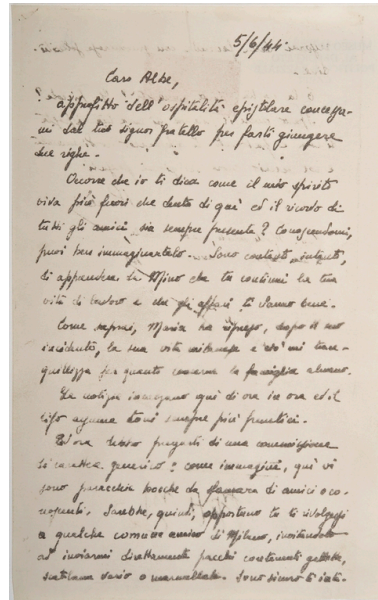 5/6/44
Caro Albe,
approfitto dell'ospitalità epistolare concessa-
mi dal tuo signor fratello per farti giungere
due righe.
Occorre che io ti dica come il mio spirito
viva più fuori che dentro di qui ed il ricordo di
tutti gli amici sia sempre presente? Conoscendomi,
puoi ben immaginartelo. Sono contento, intanto,
di apprendere da Mino che tu continui la tua
vita di lavoro e che gli affari ti vanno bene.
Come saprai, Maria ha ripreso, dopo il suo
incidente, la sua vita milanese e ciò mi tran-
quillizza per quanto concerne la famiglia almeno.
Le notizie incalzano qui di ora in ora ed il
tifo assume toni sempre più frenetici.
Ed ora debbo pregarti di una commissione
di carattere generico: come immagini, qui vi
sono parecchie bocche da sfamare di amici e co-
noscenti. Sarebbe, quindi, opportuno tu ti rivolgessi
a qualche comune amico di Milano, invitandolo
ad inviarmi direttamente pacchi contenenti gallette,
scatolame vario o marmellate. Sono sicuro ti